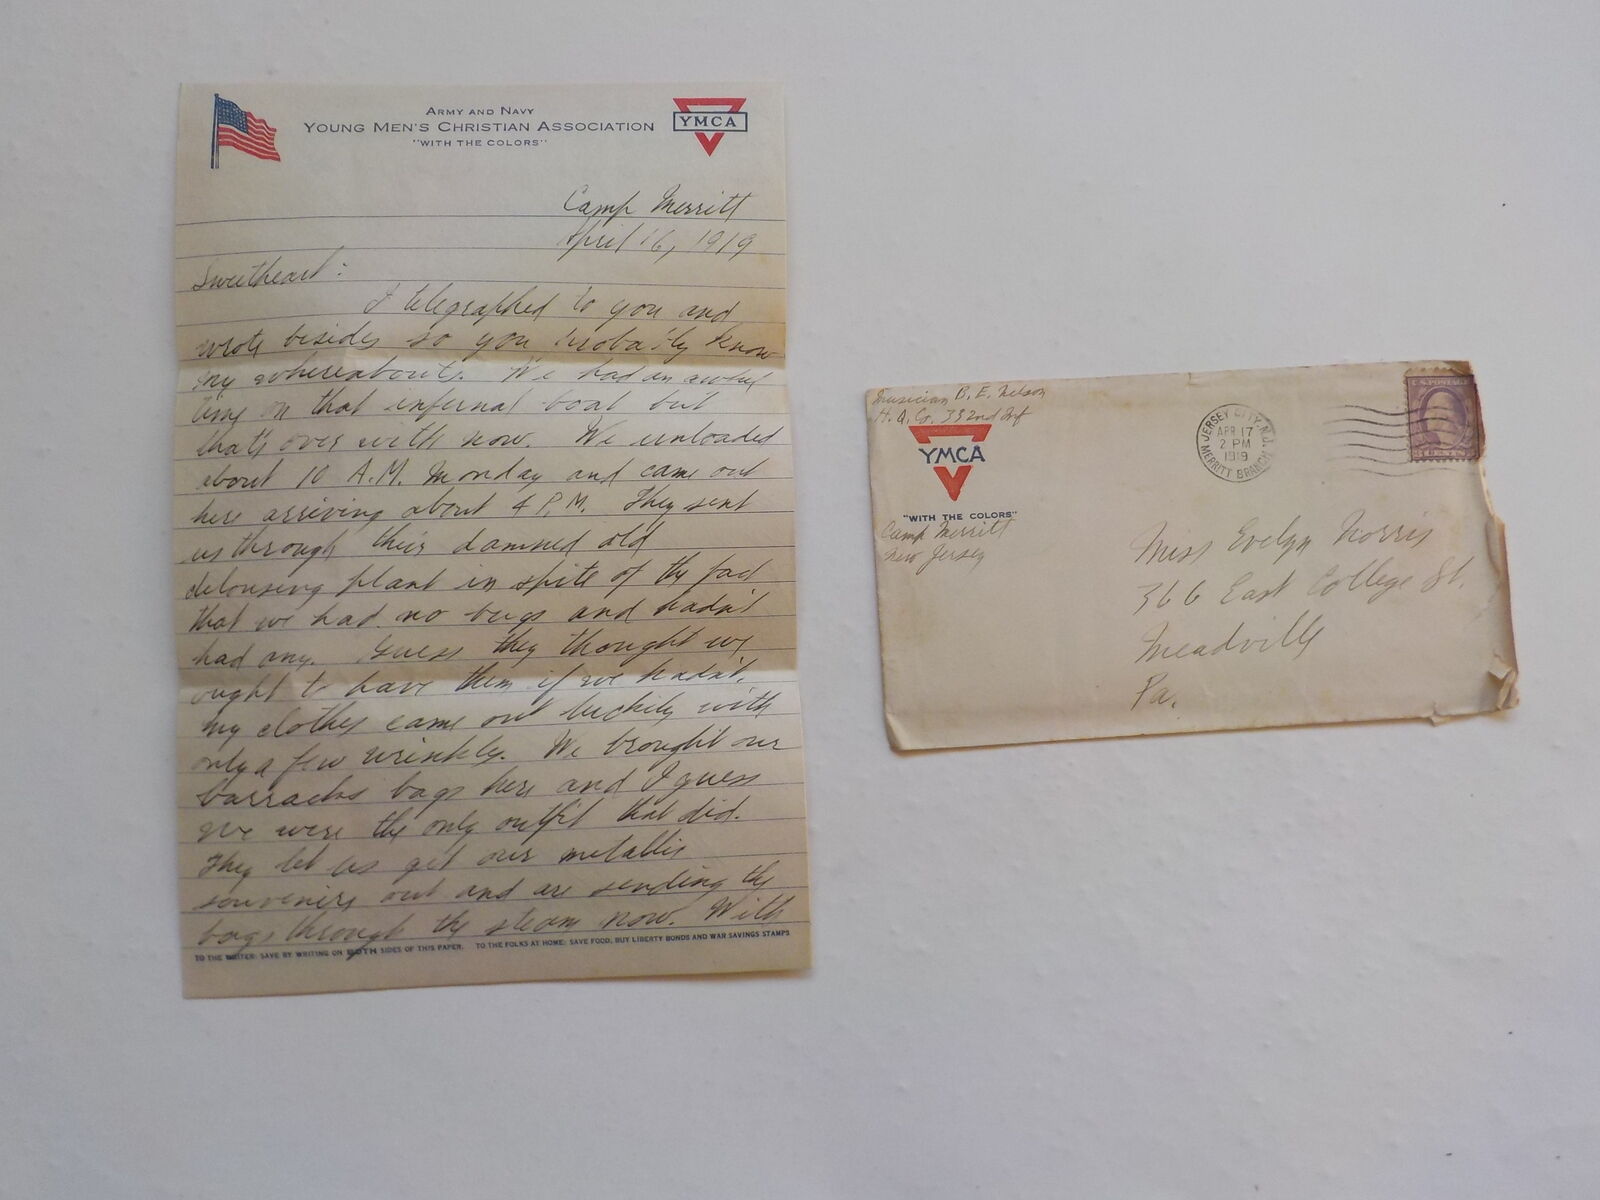 ARMY AND NAVY
YOUNG MEN'S CHRISTIAN ASSOCIATION
"WITH THE COLORS"
YMCA
Camp Merritt
April 16, 1919
Sweetheart:
I telegraphed to you and
wrote besides so you probably know
my whereabouts. We had an awful
time on that infernal boat but
that's over with now. We unloaded
about 10 A.M. Monday and came out
here arriving about 4 P.M. They sent
us through their damned old
delousing plant in spite of the fact
that we had no bugs and hadn't
had any. Guess they thought we
ought to have them if we hadn't.
My clothes came out luckily with
only a few wrinkles. We brought our
barracks bags here and I guess
we were the only outfit that did.
They let us get our metallic
souvenirs out and are sending the
bags through the steam now. With
TO THE WRITER: SAVE BY WRITING ON BOTH SIDES OF THIS PAPER. TO THE FOLKS AT HOME: SAVE FOOD, BUY LIBERTY BONDS AND WAR SAVINGS STAMPS
Musician B. E. Nelson
H. Q. Co. 332nd Inf
YMCA
"WITH THE COLORS"
Camp Merritt
New Jersey
JERSEY CITY, N.J.
APR 17
2 PM
1919
MERRITT BRANCH
U.S. POSTAGE
3 CENTS 3
Miss Evelyn Norris
366 East College St.
Meadville
Pa.